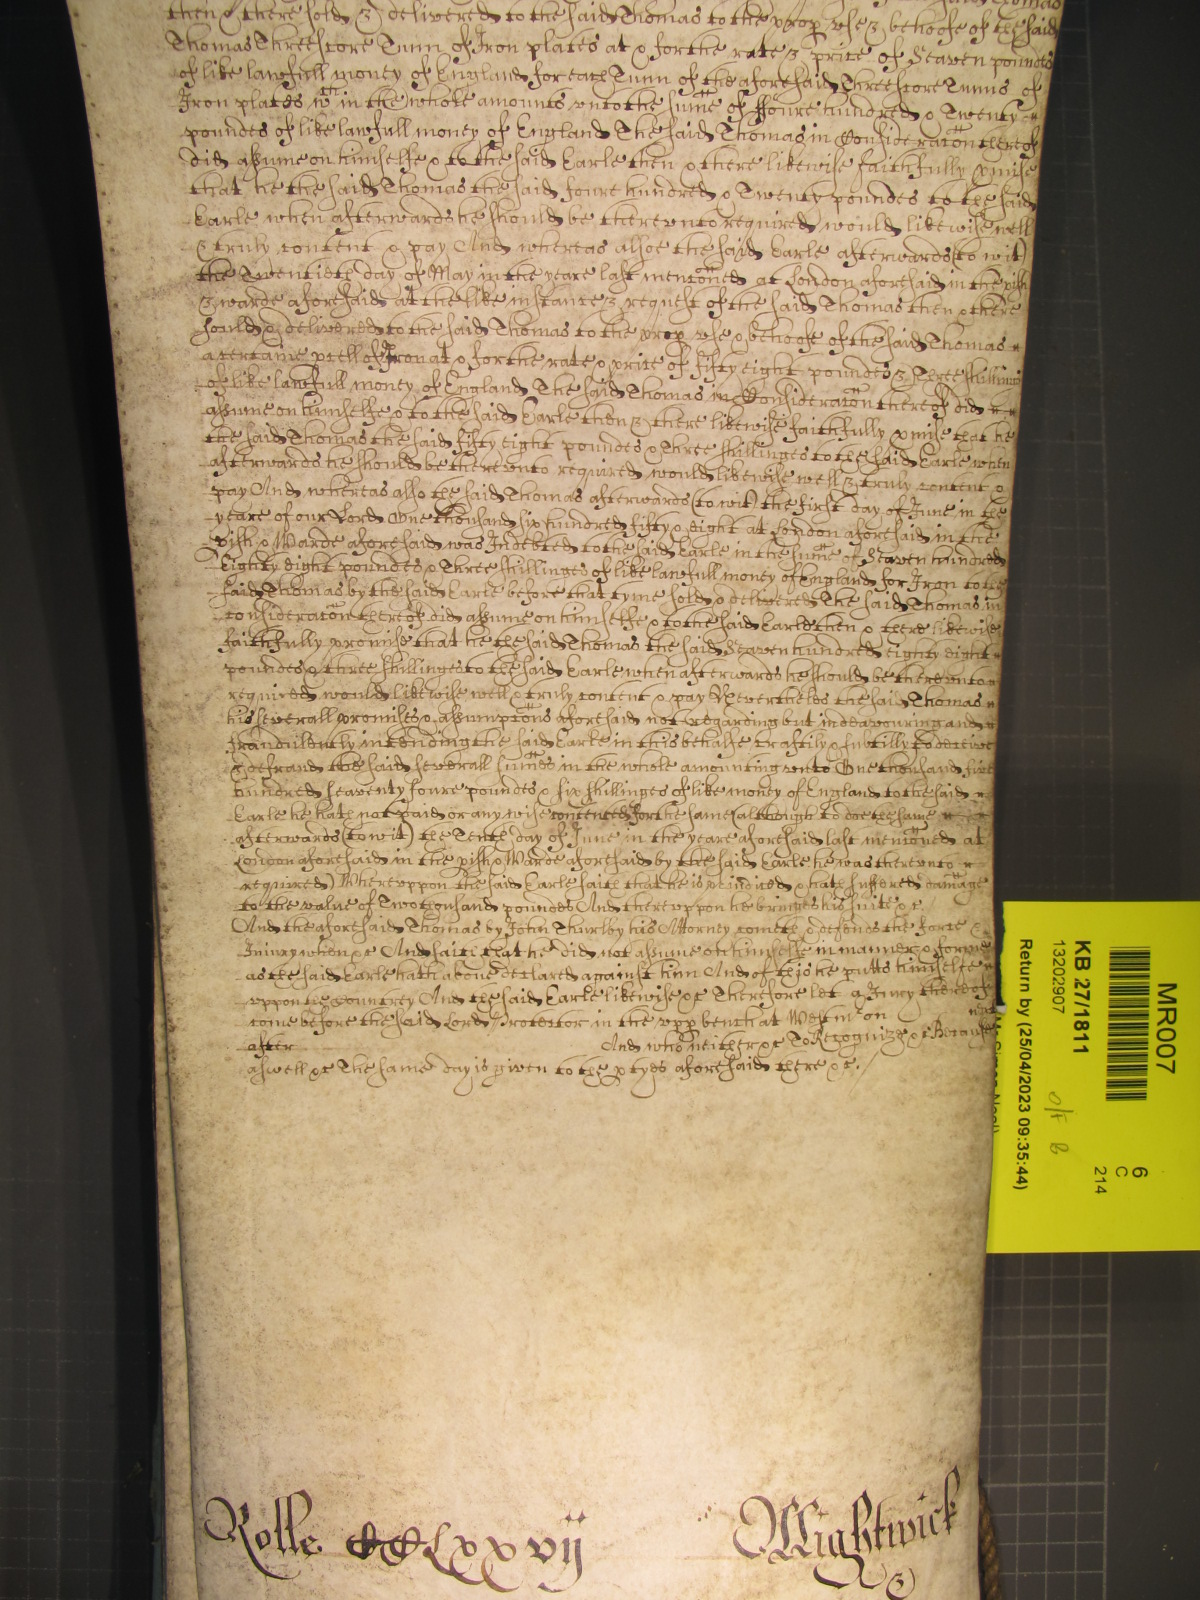 then & there sold & delivered to the said Thomas to the prop vse & behoofe of the said
Thomas Threescore Tunn of Iron plates at & for the rate & price of Seaven poundes
of like lawfull money of England for each Tunn of the aforesaid Threescore Tunns of
Iron plates wch in the whole amounts vnto the sume of ffoure hundred & Twenty
poundes of like lawfull money of England The said Thomas in Consideracon thereof
did assume on himselfe & to the said Earle then & there likewise faithfully pmise
that he the said Thomas the said foure hundred & Twenty poundes to the said
Earle when afterwards he should be therevnto required would likewise well
& truly content & pay And whereas alsoe the said Earle afterwards (to wit)
the Twentieth day of May in the yeare last mentoned at London aforesaid in the pish
& warde aforesaid at the like instance & request of the said Thomas then & there
sould & delivered to the said Thomas to the prop vse & behoofe of the said Thomas
a certaine pcell of Iron at & for the rate & price of fifty eight poundes & Three shillings
of like lawfull money of England The said Thomas in Consideracon thereof did
assume on himselfe & to the said Earle then & there likewise faithfully pmise that he
the said Thomas the said fifty eight poundes & Three shillinges to the said Earle when
afterwards he should be therevnto required would likewise well & truly content &
pay And whereas also the said Thomas afterwards (to wit) the first day of June in the
yeare of our Lord One thousand six hundred fifty & eight at London aforesaid in the
pish & Warde aforesaid was Indebted to the said Earle in the sume of Seaven hundred
Eighty eight poundes & Three shillinges of like lawfull money of England for Iron to the
said Thomas by the said Earle before that tyme sold & delivered The said Thomas in
consideracon thereof did assume on himselfe & to the said Earle then & there likewise
faithfully promise that he the said Thomas the said Seaven hundred eighty eight
poundes & three shillinges to the said Earle when afterwards he should be therevnto
required would likewise well & truly content & pay Neverthelès the said Thomas
his severall promises & assumptons aforesaid not regarding but indeavouring and
fraudulently intending the said Earle in this behalfe craftily & subtilly to deceive
& defraud the said severall sumes in the whole amounting vnto One thousand five
hundred seaventy foure poundes & six shillinges of like money of England to the said
Earle he hath not paid or any wise contented for the same (although to doe the same
afterwards (to wit) the Tenth day of June in the yeare aforesaid last mentoned at
London aforesaid in the pish & Warde aforesaid by the said Earle he was therevnto
required) Wherevppon the said Earle saith that he is piudiced & hath suffered damage
to the value of Two thousand poundes And therevppon he bringes his suite &c
And the aforesaid Thomas by John Thurlby his Attorney cometh & defends the force &
Iniury when &c And saith that he did not assume on himselfe in manner & forme
as the said Earle hath above declared against him And of this he putts himselfe
vppon the countrey And the said Earle likewise &c Therefore let a Jury thereof
come before the said Lord Protector in the vpp bench at Westm on next
after And who neither &c To Recognize &c Because
aswell &c The same day is given to the ptyes aforesaid there &c.
Rolle CCLxxvij
Wightwick
MR007
6
C
214
KB 27/1811
13202907
O/F B
Return by (25/04/2023 09:35:44)